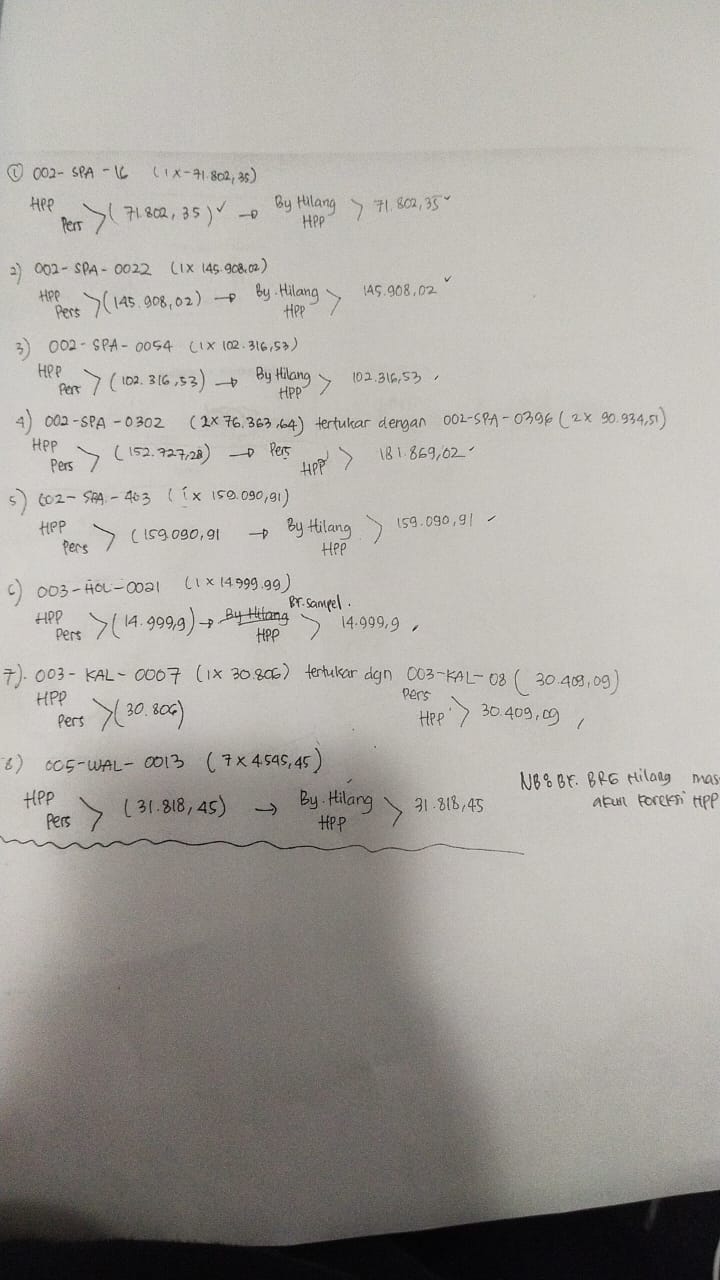 ① 002- SPA - 16 (1 X - 71.802,35)
HPP
Pers > (71.802,35) ✓ → By Hilang
HPP > 71.802,35 ✓
2) 002- SPA - 0022 (1X 145.908.02)
HPP
Pers > (145.908,02) → By. Hilang
HPP > 145.908,02 ✓
3) 002 - SPA - 0054 (1X 102.316,53)
HPP
Pers > (102.316,53) → By Hilang
HPP > 102.316,53
4) 002-SPA - 0302 (2X 76.363,64) tertukar dengan 002-SPA-0396 (2X 90.934,51)
HPP
Pers > (152.727,28) → Pers
HPP > 181.869,02
5) 002- SPA - 403 (1 X 159.090,91)
HPP
Pers > (159.090,91 → By Hilang
HPP > 159.090,91
6) 003-HOL-0021 (1 X 14.999.99)
HPP
Pers > (14.999,9) → By Hilang Br. sampel.
HPP > 14.999,9
7). 003 - KAL - 0007 (1X 30.806) tertukar dgn 003-KAL-08 (30.409,09)
HPP
Pers > (30.806)
Pers
HPP > 30.409,09
8) 005-WAL- 0013 (7 X 4.545,45)
HPP
Pers > (31.818,45) → By. Hilang
HPP > 31.818,45
BRG Hilang mas
akun koreksi HPP